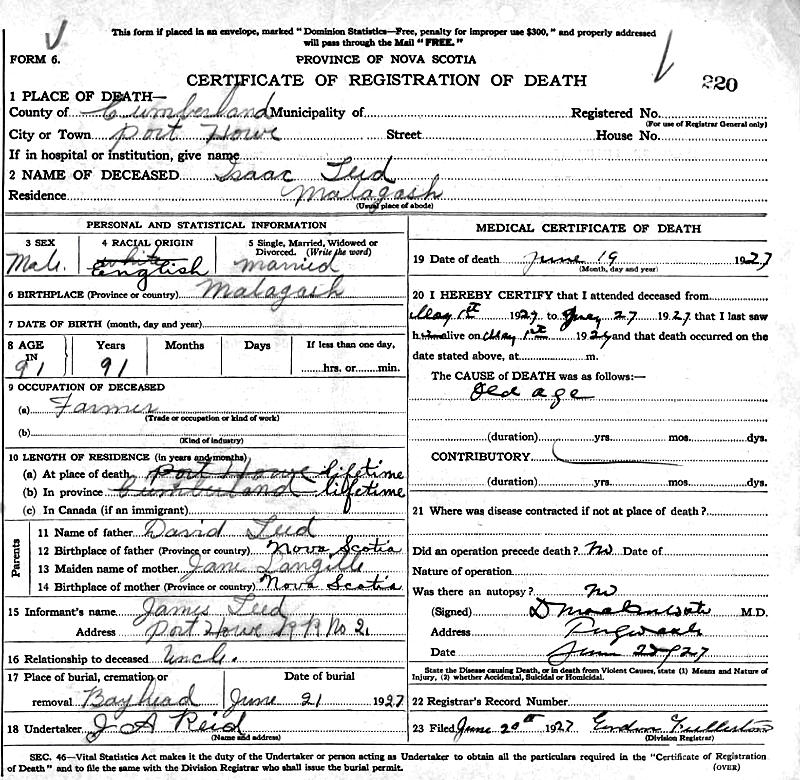 This form if placed in an envelope, marked "Dominion Statistics—Free, penalty for improper use $300," and properly addressed
will pass through the Mail "FREE."
FORM 6.
PROVINCE OF NOVA SCOTIA
CERTIFICATE OF REGISTRATION OF DEATH
220
1 PLACE OF DEATH—
County of Cumberland Municipality of Registered No.
(For use of Registrar General only)
City or Town Port Howe Street House No.
If in hospital or institution, give name
2 NAME OF DECEASED Isaac Teed
Residence Malagash
(Usual place of abode)
PERSONAL AND STATISTICAL INFORMATION
3 SEX Male.
4 RACIAL ORIGIN white English
5 Single, Married, Widowed or Divorced. (Write the word) married
6 BIRTHPLACE (Province or country) Malagash
7 DATE OF BIRTH (month, day and year)
8 AGE IN 91 Years 91 Months Days If less than one day, hrs. or min.
9 OCCUPATION OF DECEASED
(a) Farmer
(Trade or occupation or kind of work)
(b)
(Kind of industry)
10 LENGTH OF RESIDENCE (in years and months)
(a) At place of death Port Howe lifetime
(b) In province Cumberland lifetime
(c) In Canada (if an immigrant)
Parents
11 Name of father David Teed
12 Birthplace of father (Province or country) Nova Scotia
13 Maiden name of mother Jane Langille
14 Birthplace of mother (Province or country) Nova Scotia
15 Informant's name James Teed
Address Port Howe R R No 2.
16 Relationship to deceased Uncle.
17 Place of burial, cremation or removal Bayhead
Date of burial June 21 1927
18 Undertaker J A Reid
(Name and address)
MEDICAL CERTIFICATE OF DEATH
19 Date of death June 19 1927
(Month, day and year)
20 I HEREBY CERTIFY that I attended deceased from
May 1st 1927 to May 27 1927 that I last saw
him alive on May 1st 192 and that death occurred on the
date stated above, at m.
The CAUSE of DEATH was as follows:—
Old age
(duration) yrs. mos. dys.
CONTRIBUTORY
(duration) yrs. mos. dys.
21 Where was disease contracted if not at place of death?
Did an operation precede death? No Date of
Nature of operation
Was there an autopsy? No
(Signed) M.D.
Address Pugwash
Date June 1927
State the Disease causing Death, or in death from Violent Causes, state (1) Means and Nature of
Injury, (2) whether Accidental, Suicidal or Homicidal.
22 Registrar's Record Number
23 Filed June 20th 1927 Fullerton
(Division Registrar)
SEC. 46—Vital Statistics Act makes it the duty of the Undertaker or person acting as Undertaker to obtain all the particulars required in the "Certificate of Registration
of Death" and to file the same with the Division Registrar who shall issue the burial permit. (OVER)